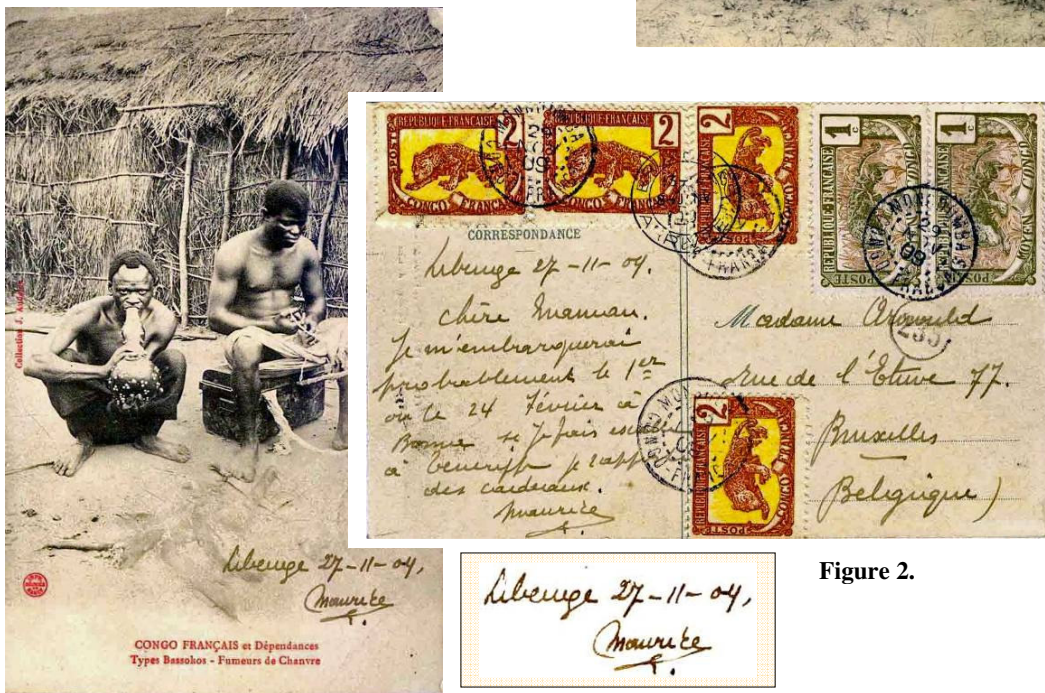 Collection J. Audema
Libenge 27-11-09,
Maurice
CONGO FRANÇAIS et Dépendances
Types Bassokos - Fumeurs de Chanvre
POSTE
REPUBLIQUE FRANÇAISE
2
CONGO FRANÇAIS
REPUBLIQUE FRANÇAISE
2
CONGO FRANÇAIS
REPUBLIQUE FRANÇAISE
2
CONGO FRANÇAIS
POSTE
REPUBLIQUE FRANÇAISE
1c
MOYEN CONGO
POSTE
REPUBLIQUE FRANÇAISE
1c
MOYEN CONGO
POSTE
CORRESPONDANCE
Libenge 27-11-09.
chère Maman.
Je m'embarquerai
probablement le 1er
ou le 24 février à
Boma si je fais
à Teneriffe
des cadeaux.
Maurice
Madame
Rue de l'Etuve 77.
Bruxelles
Belgique)
REPUBLIQUE FRANÇAISE
2
CONGO FRANÇAIS
POSTE
Libenge 27-11-09,
Maurice
Figure 2.